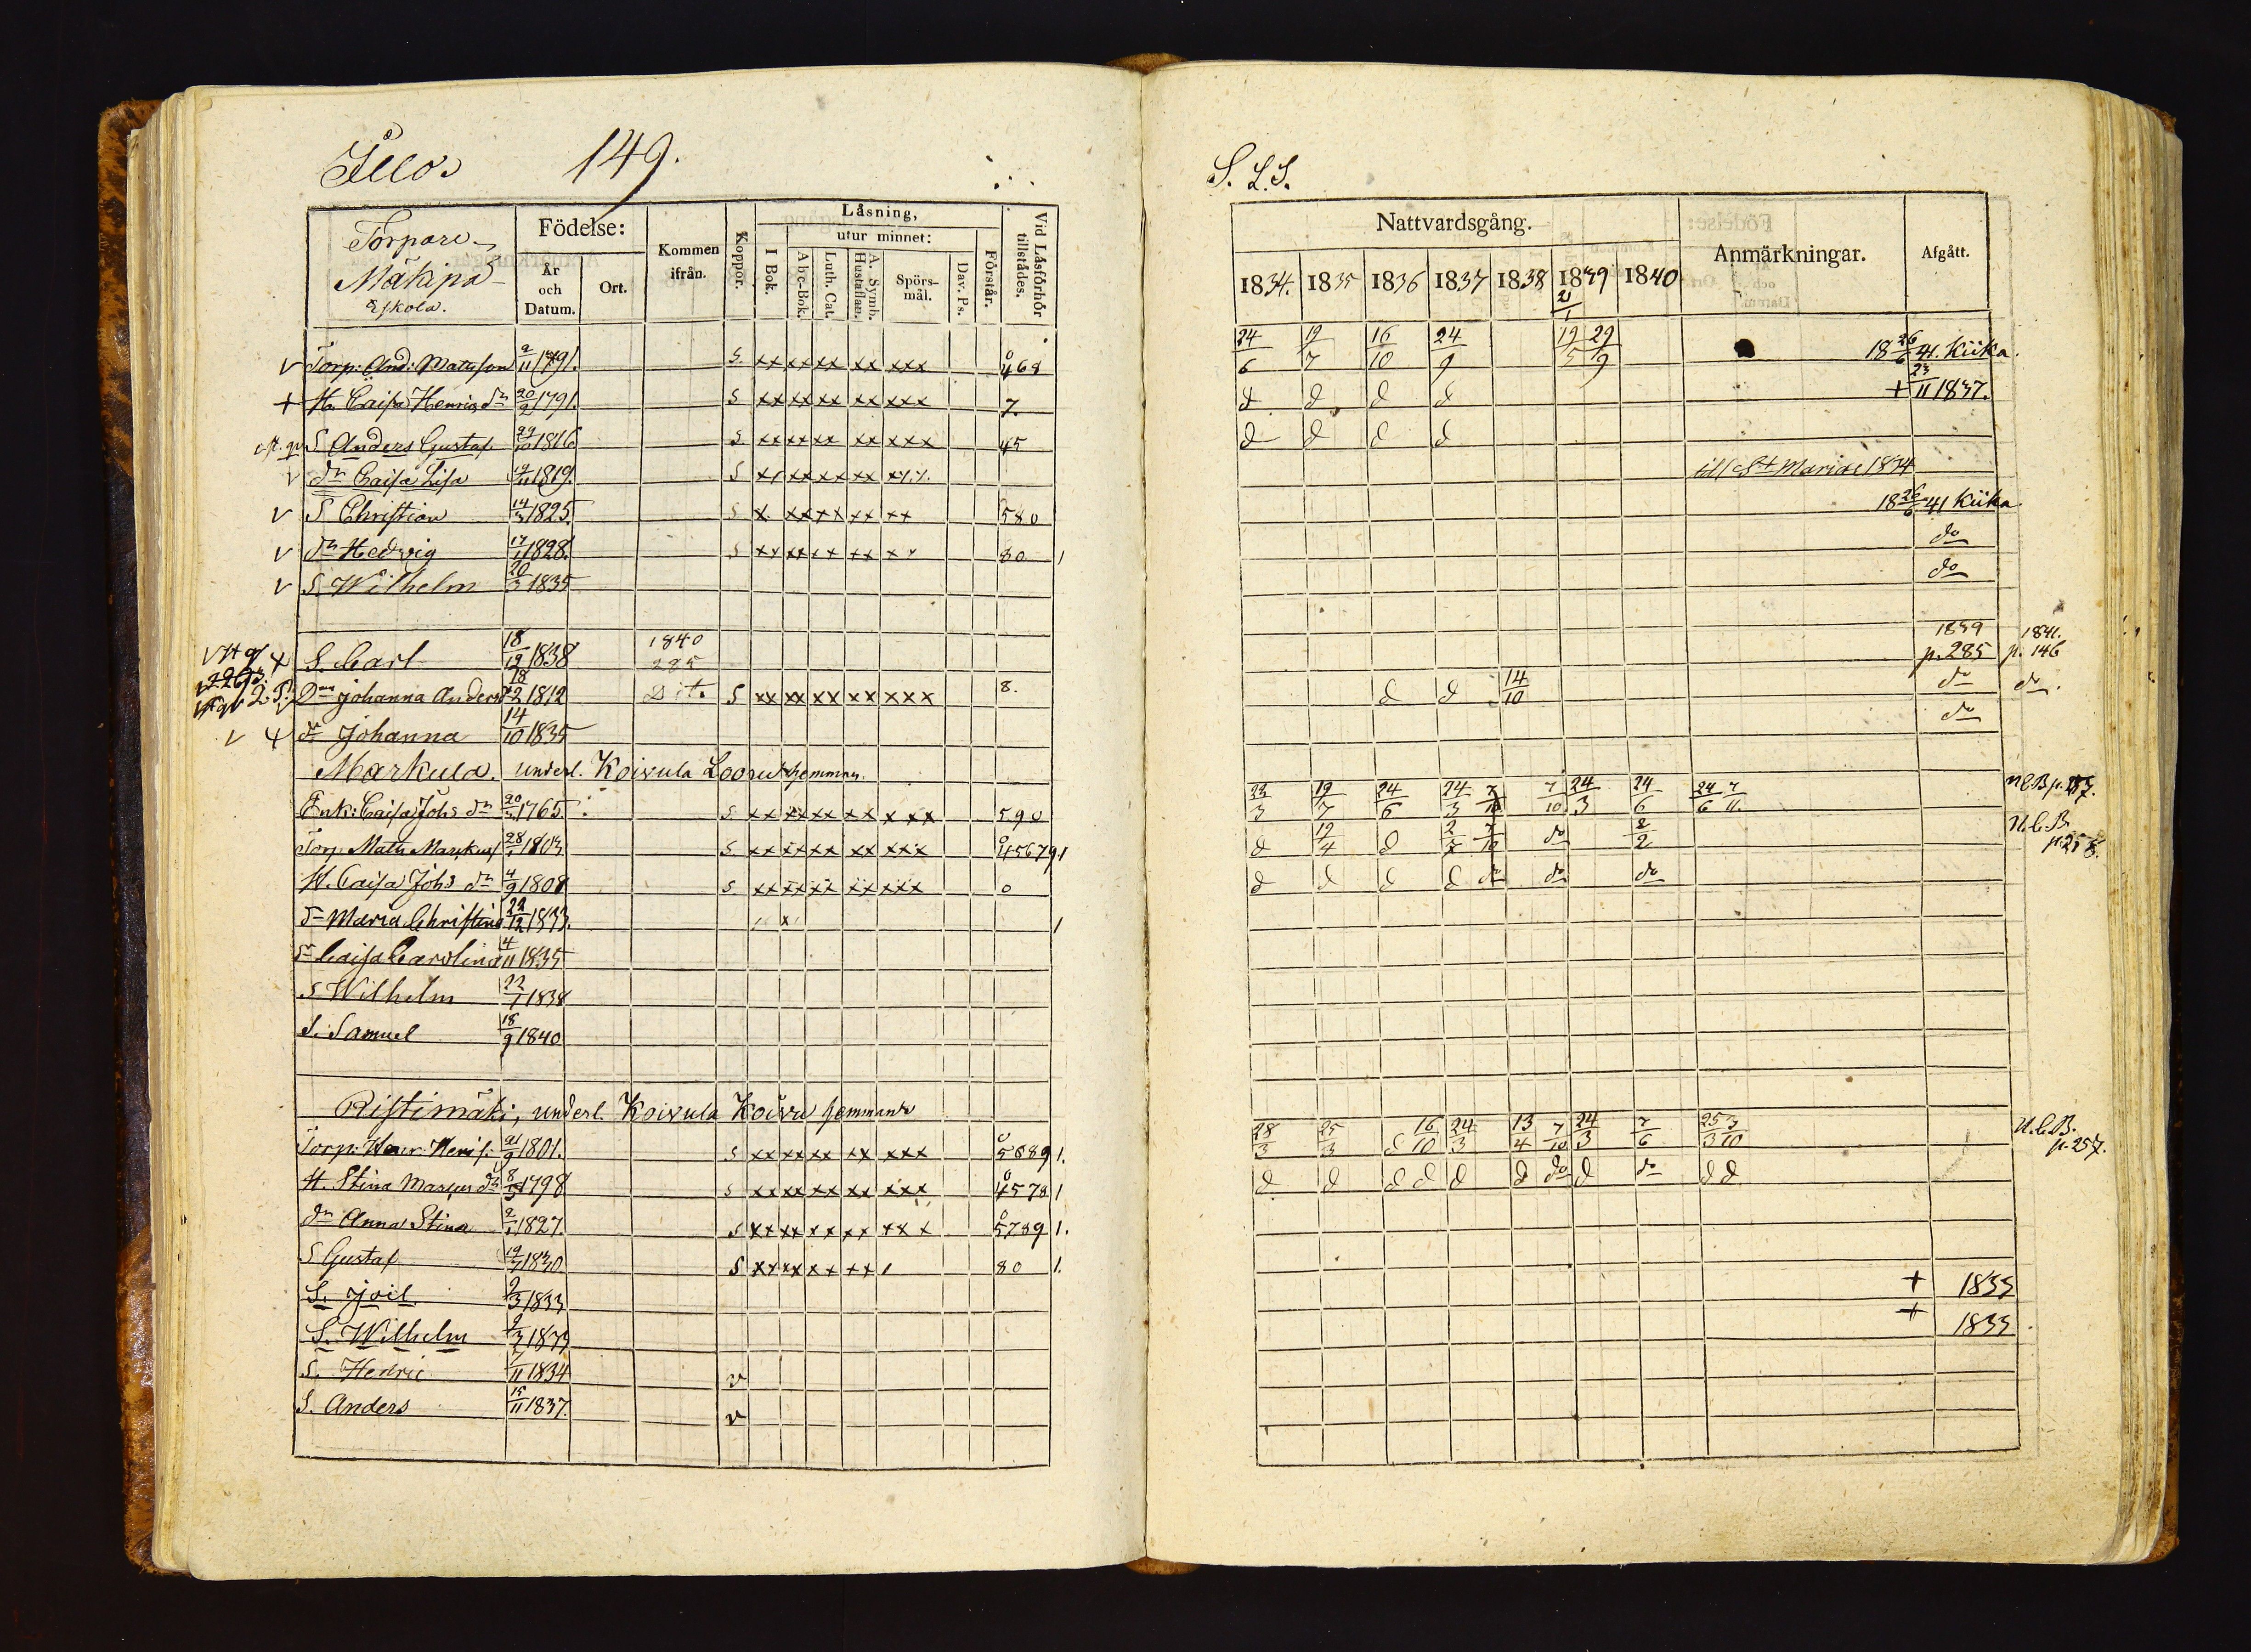 149.
Torpare
Mäkipä
Eskola.
Födelse:
År och Datum.
Ort.
Kommen ifrån.
Koppor.
Läsning,
I Bok.
utur minnet:
Abc-Bok.
Luth. Cat.
A. Symb. Hustaflan.
Spörs-mål.
Dav. Ps.
Förstår.
Vid Läsförhör tillstådes.
Torp: And: Matsson 2/11 1791. S. xx xx xx xx xxx
+ H. Caisa Henrics dr 20/2 1791. S xx xx xx xx xxx 7.
S Anders Gustaf 29/10 1816 S. xx xx xx xx xxx 45
dr Caisa Lisa 1819. S
S Christian 14/3 1825. S x xx xx xx xx 580
dr Hedvig 17/1 1828. S xx xx xx xx 80 1
S. Wilhelm 20/3 1835
S. Carl 18/12 1838 1840 285
Johanna Anders 18/2 1812 Dito S xx xx xx xx xxx 8.
dr Johanna 14/10 1835
Markula. underl. Koivula hemman
Enk: Caisa Johs dr 20/3 1765. S xx xx xx xx xxx 590
Torp. Matts Markus 28/1 1803 S. xx xx xx xx xxx
H. Caisa Johs dr 4/9 1808 S xx xx xx xx xxx 0
dr Maria Christina 22/12 1833. x 1
dr Caisa Carolina 4/11 1835
S Wilhelm 22/1 1838
S. Samuel 18/9 1840
Ristimäki, underl. Koivula Koivu hemman
Torp: Henr: 21/9 1801. S xx xx xx xx xxx 1.
H. Stina Marcus dr 1798 S xx xx xx xx xxx 4578 1
dr Anna Stina 2/1 1827. S xx xx xx xx xxx 5789 1.
S Gustaf 1830 S xx xx xx xx 80 1.
S. Joel 9/3 1833
S. Wilhelm 9/3 1833
S. Henric 7/11 1834 v
S. Anders 15/11 1837. v
S. L. S.
Nattvardsgång.
1834. 1835 1836 1837 1838 1839 1840
Anmärkningar.
Afgått.
24/6 19/7 16/10 24/9 19/5 29/9 18 26/6 41. Kiika.
d d d d + 23/11 1837.
d d d d
till St Mariae 1834
18 26/6 41 Kiika
do
do
1839 p. 285 1841. p. 146
d d 14/10 do do.
do
23/3 19/7 24/6 24/3 7/10 7/10 24/3 24/6 24/6
d 19/4 d 7/10 do 2/2 N.C.B. p. 258.
d d d d do do do
28/3 25/3 d 16/10 24/3 13/4 7/10 24/3 7/6 25/3 3/10 N.C.B. p. 257.
d d d d d d do d do d d
+ 1833
+ 1833